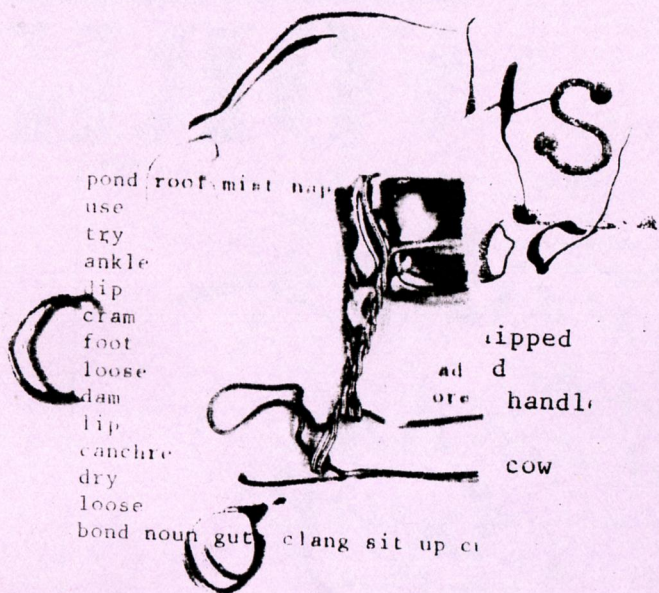 S
pond roof mist nap
use
try
ankle
dip
cram
foot
loose
dam
lip
canchre
dry
loose
bond noun gut clang sit up
ipped
ad d
ore handle
cow